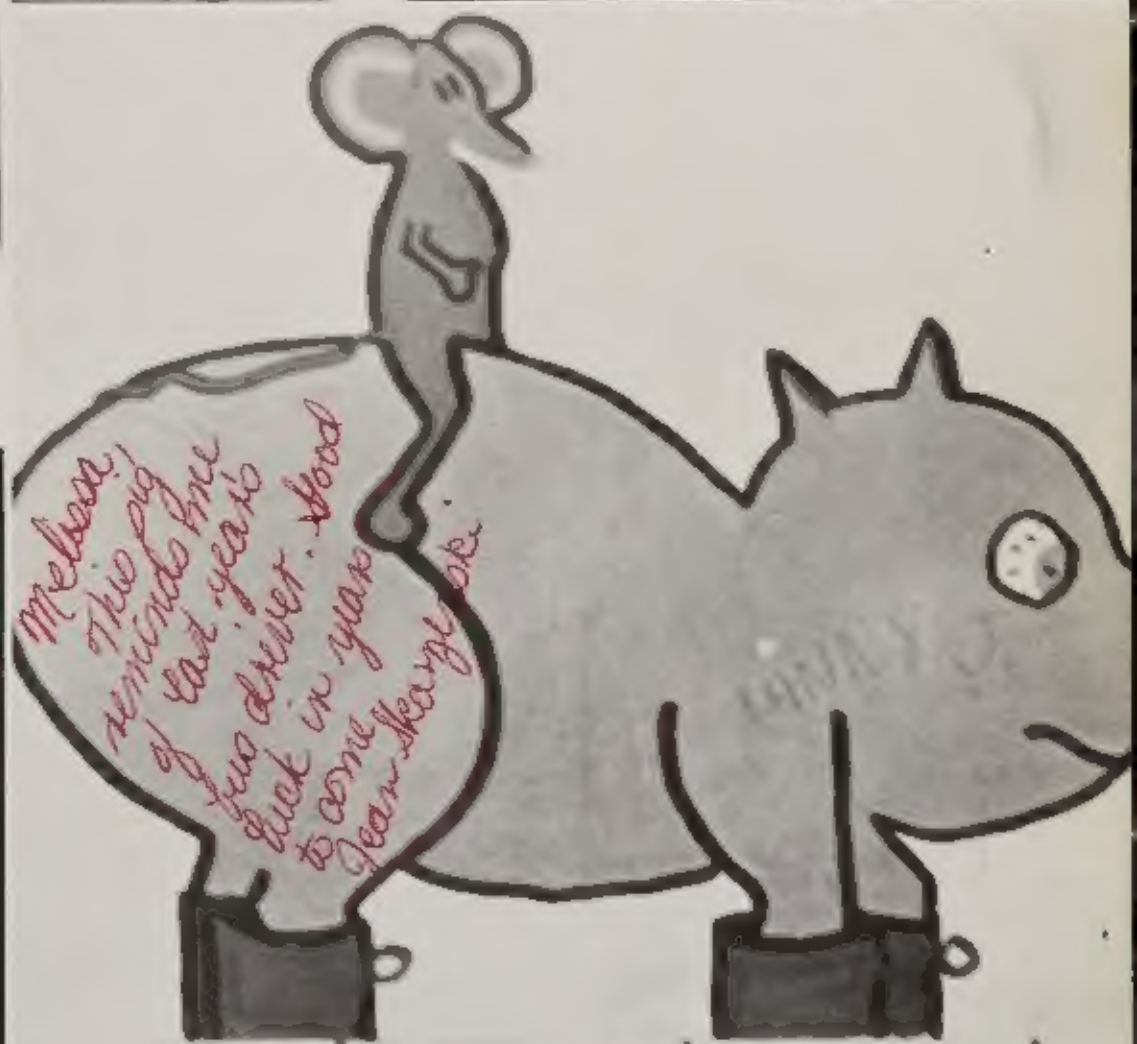 Melissa,
This pig
reminds me
of last year's
bus driver. Good
luck in years
to come
Jean